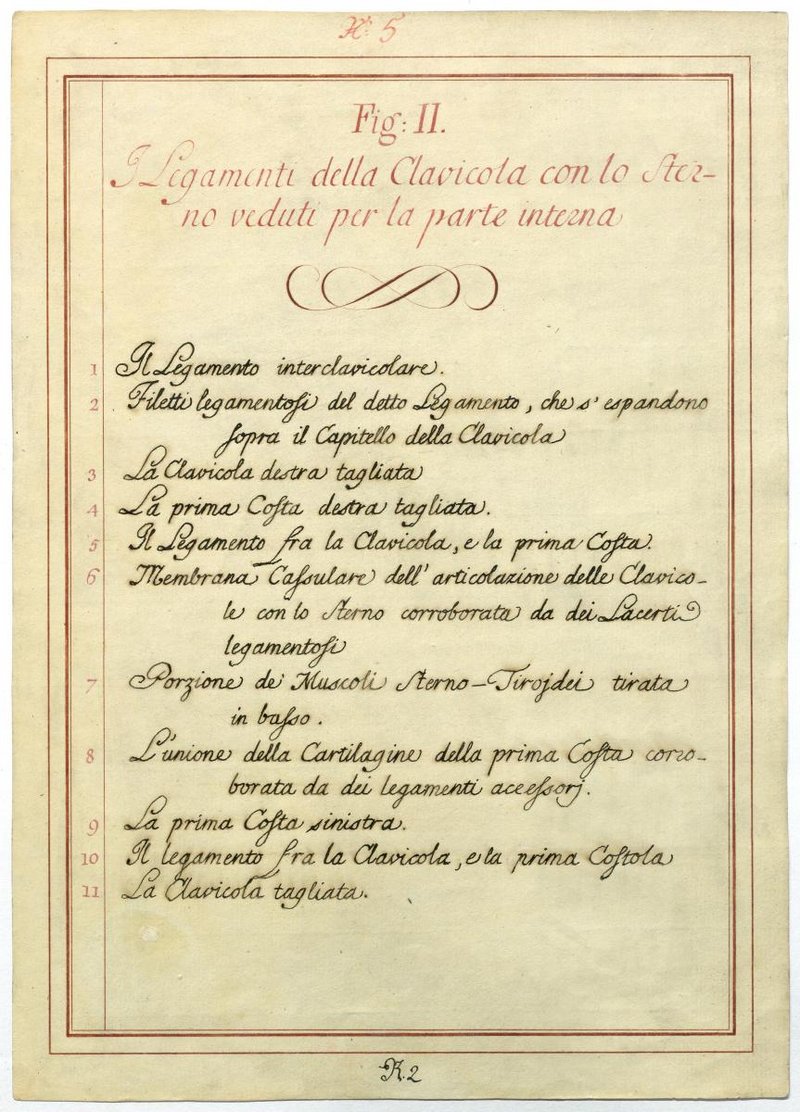 N.° 5
Fig: II.
I Legamenti della Clavicola con lo Ster-
no veduti per la parte interna
1 Il Legamento interclavicolare.
2 Filetti legamentosi del detto Legamento, che s' espandono
sopra il Capitello della Clavicola
3 La Clavicola destra tagliata
4 La prima Costa destra tagliata.
5 Il Legamento fra la Clavicola, e la prima Costa.
6 Membrana Cassulare dell' articolazione delle Clavico-
le con lo Sterno corroborata da dei Lacerti
legamentosi
7 Porzione de' Muscoli Sterno-Tirojdei tirata
in basso.
8 L'unione della Cartilagine della prima Costa corro-
borata da dei legamenti accessorj.
9 La prima Costa sinistra.
10 Il legamento fra la Clavicola, e la prima Costola
11 La Clavicola tagliata.
R.2